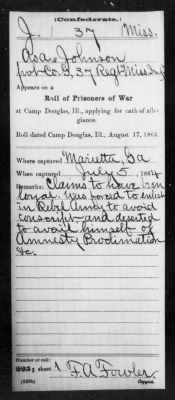 (Confederate.)
J. 37 Miss.
Asa Johnson
Co. G, 37 Reg't Miss. Inf.
Appears on a
Roll of Prisoners of War
at Camp Douglas, Ill., applying for oath of alle-
giance.
Roll dated Camp Douglas, Ill., August 17, 1864.
Where captured Marietta, Ga
When captured July 5, 1864
Remarks: Claims to have been
loyal. Was forced to enlist
in Rebel Army to avoid
conscript and deserted
to avail himself of
Amnesty Proclamation
&c.
Number of roll:
223; sheet 1 F.A. Fowler
Copyist.